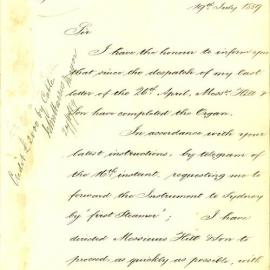 19th July 1889
Sir
I have the honour to inform you
that since the despatch of my last
letter of the 26th April, Messrs. Hill &
Son have completed the Organ.
In accordance with your
latest instructions, by telegram of
the 16th instant, requesting me to
forward the Instrument to Sydney
by "first Steamer"; I have
desired Messieurs Hill & Son to
proceed, as quickly as possible, with